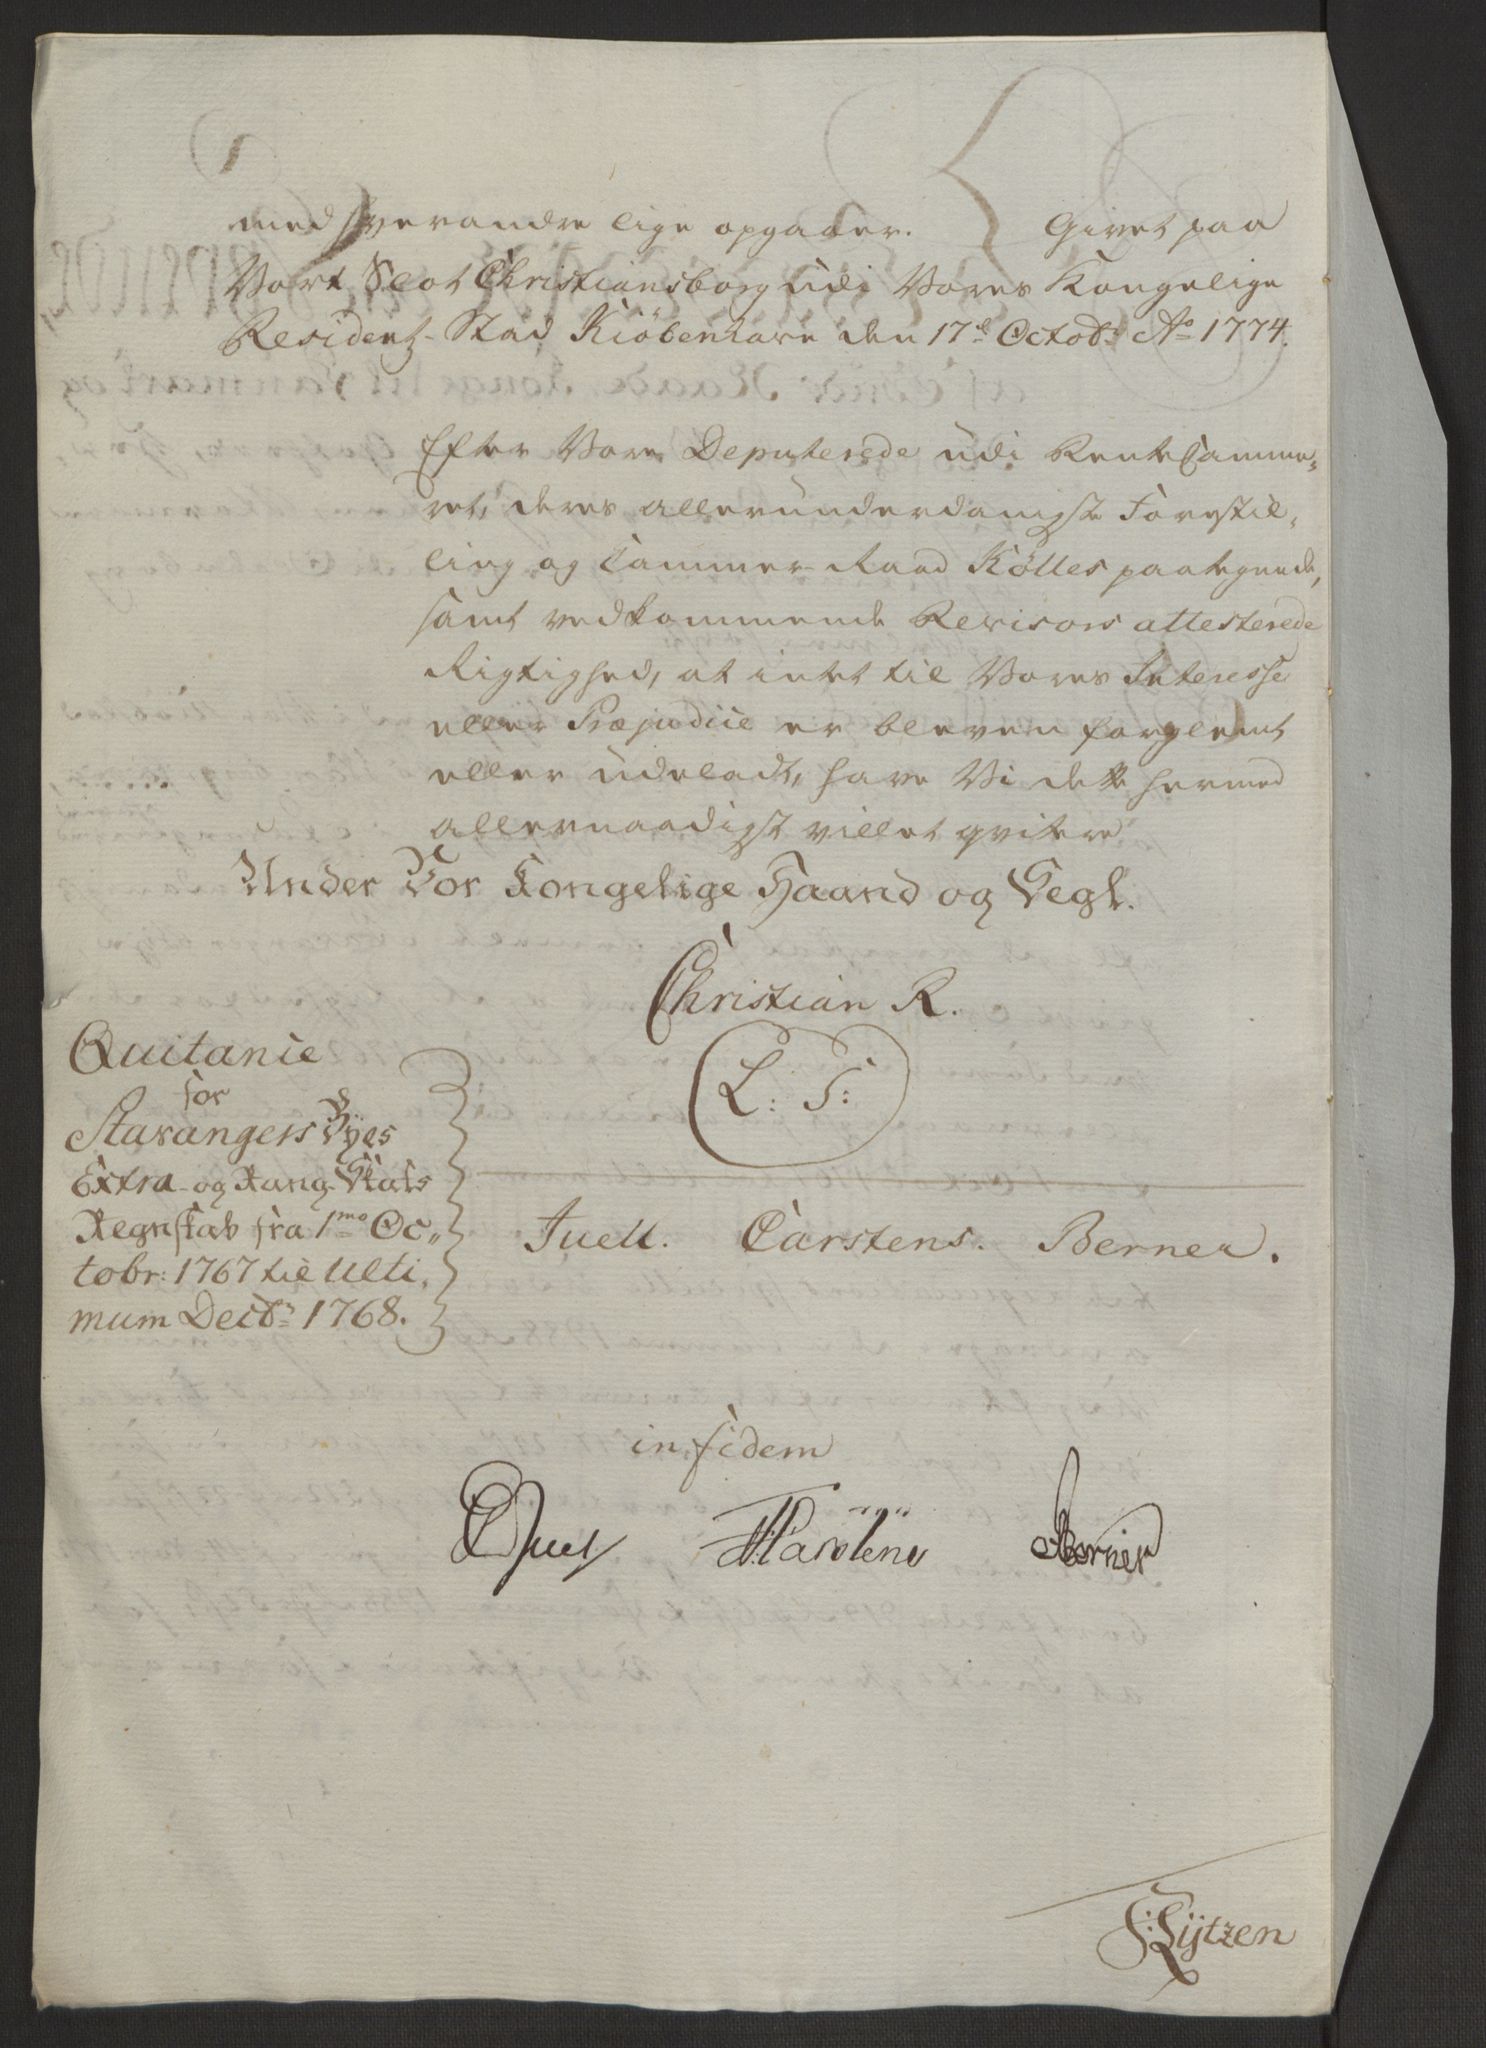 med hverandre lige opgaaer. Givet paa
Vort Slot Christiansborg udi Vores Kongelige
Residentz-Stad Kiöbenhavn den 17de Octobr Ao 1774.
Efter Vore Deputerede udi RenteCamme-
ret, deres allerunderdanigste Forestil-
ling og Cammer-Raad Kölles paategnede,
samt vedkommende Revisors attesterede
Rigtighed, at intet til Vores Interesse
eller Præjudice er bleven forglemt
eller udeladt, have Vi dette hermed
allernaadigst villet qvitere
Under Vor Kongelige Haand og Segl.
Christian R.
L: S:
Quitanie
for
Stavangers Byes
Extra- og Rang-Skats
Regnskab fra 1mo Oc-
tobr: 1767 til Ulti-
mum Decbr 1768.
Juell. Carstens. Berner.
in fidem
Juel Carstens Berner
Lÿtzen